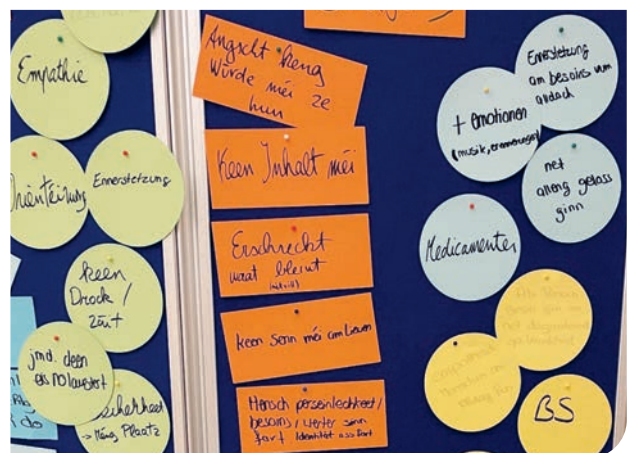 Empathie
Orientéirung
Ennerstëtzung
keen
Drock /
Zäit
jmd. deen
eis nolauschtert
Sécherheet
→ Méng Plaatz
do
Angscht keng
Würde méi ze
hun
Keen Inhalt méi
Erschreckt
wat bleiwt
keen Senn méi am Liewen
Mënsch perséinlechkeet/
besoins/wërter sinn
fort Identitéit ass fort
Ennerstëtzung
am besoins vum
+ emotionen
(musik, erënnerungen)
net
alleng gelass
ginn
Medicamenter
BS